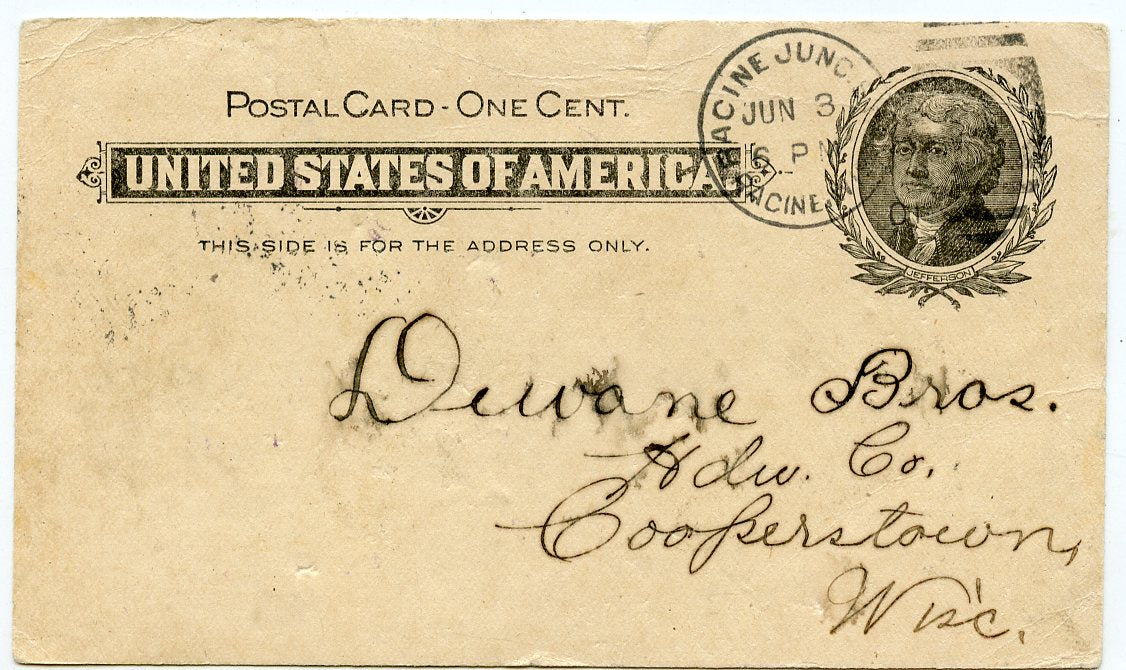 POSTAL CARD - ONE CENT.
UNITED STATES OF AMERICA
THIS SIDE IS FOR THE ADDRESS ONLY.
RACINE JUNC.
JUN 3
6 PM
RACINE
JEFFERSON
Dewane Bros.
Hdw. Co.
Cooperstown,
Wisc.